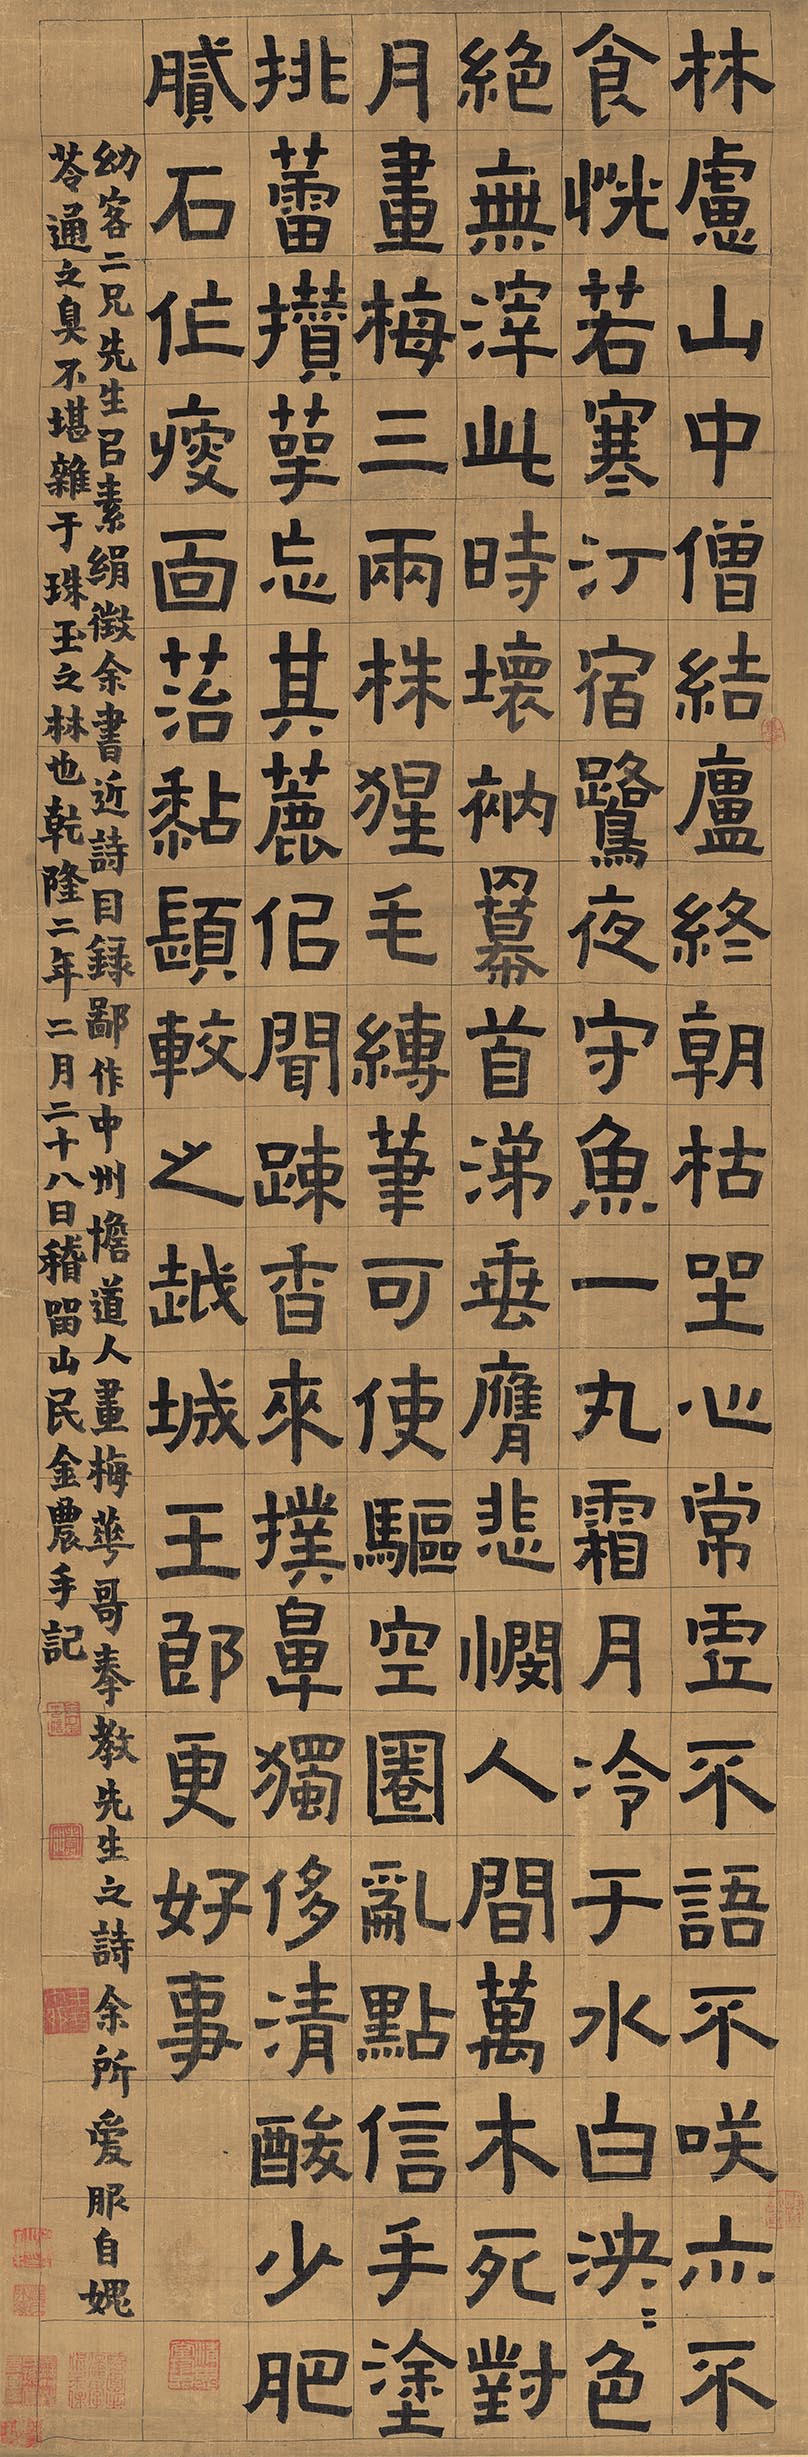 林慮山中僧結廬終朝枯坐心常雲不語不咲亦不
食恍若寒汀宿鷺夜守魚一丸霜月冷于水白泱〻色
絕無滓此時壞衲冪首涕垂膺悲憫人間萬木死對
月畫梅三兩株猩毛縛筆可使驅空圈亂點信手塗
挑蕾攢萼忘其麤但聞踈香來撲鼻獨侈清酸少肥
膩石作瘦面苔黏顋較之越城王郎更好事
幼客二兄先生㠯素絹徵余書近詩目錄鄙作中州檐道人畫梅華哥奉教先生之詩余所愛服自媿
苓通之臭不堪雜于珠玉之林也乾隆二年二月二十八日稽留山民金農手記